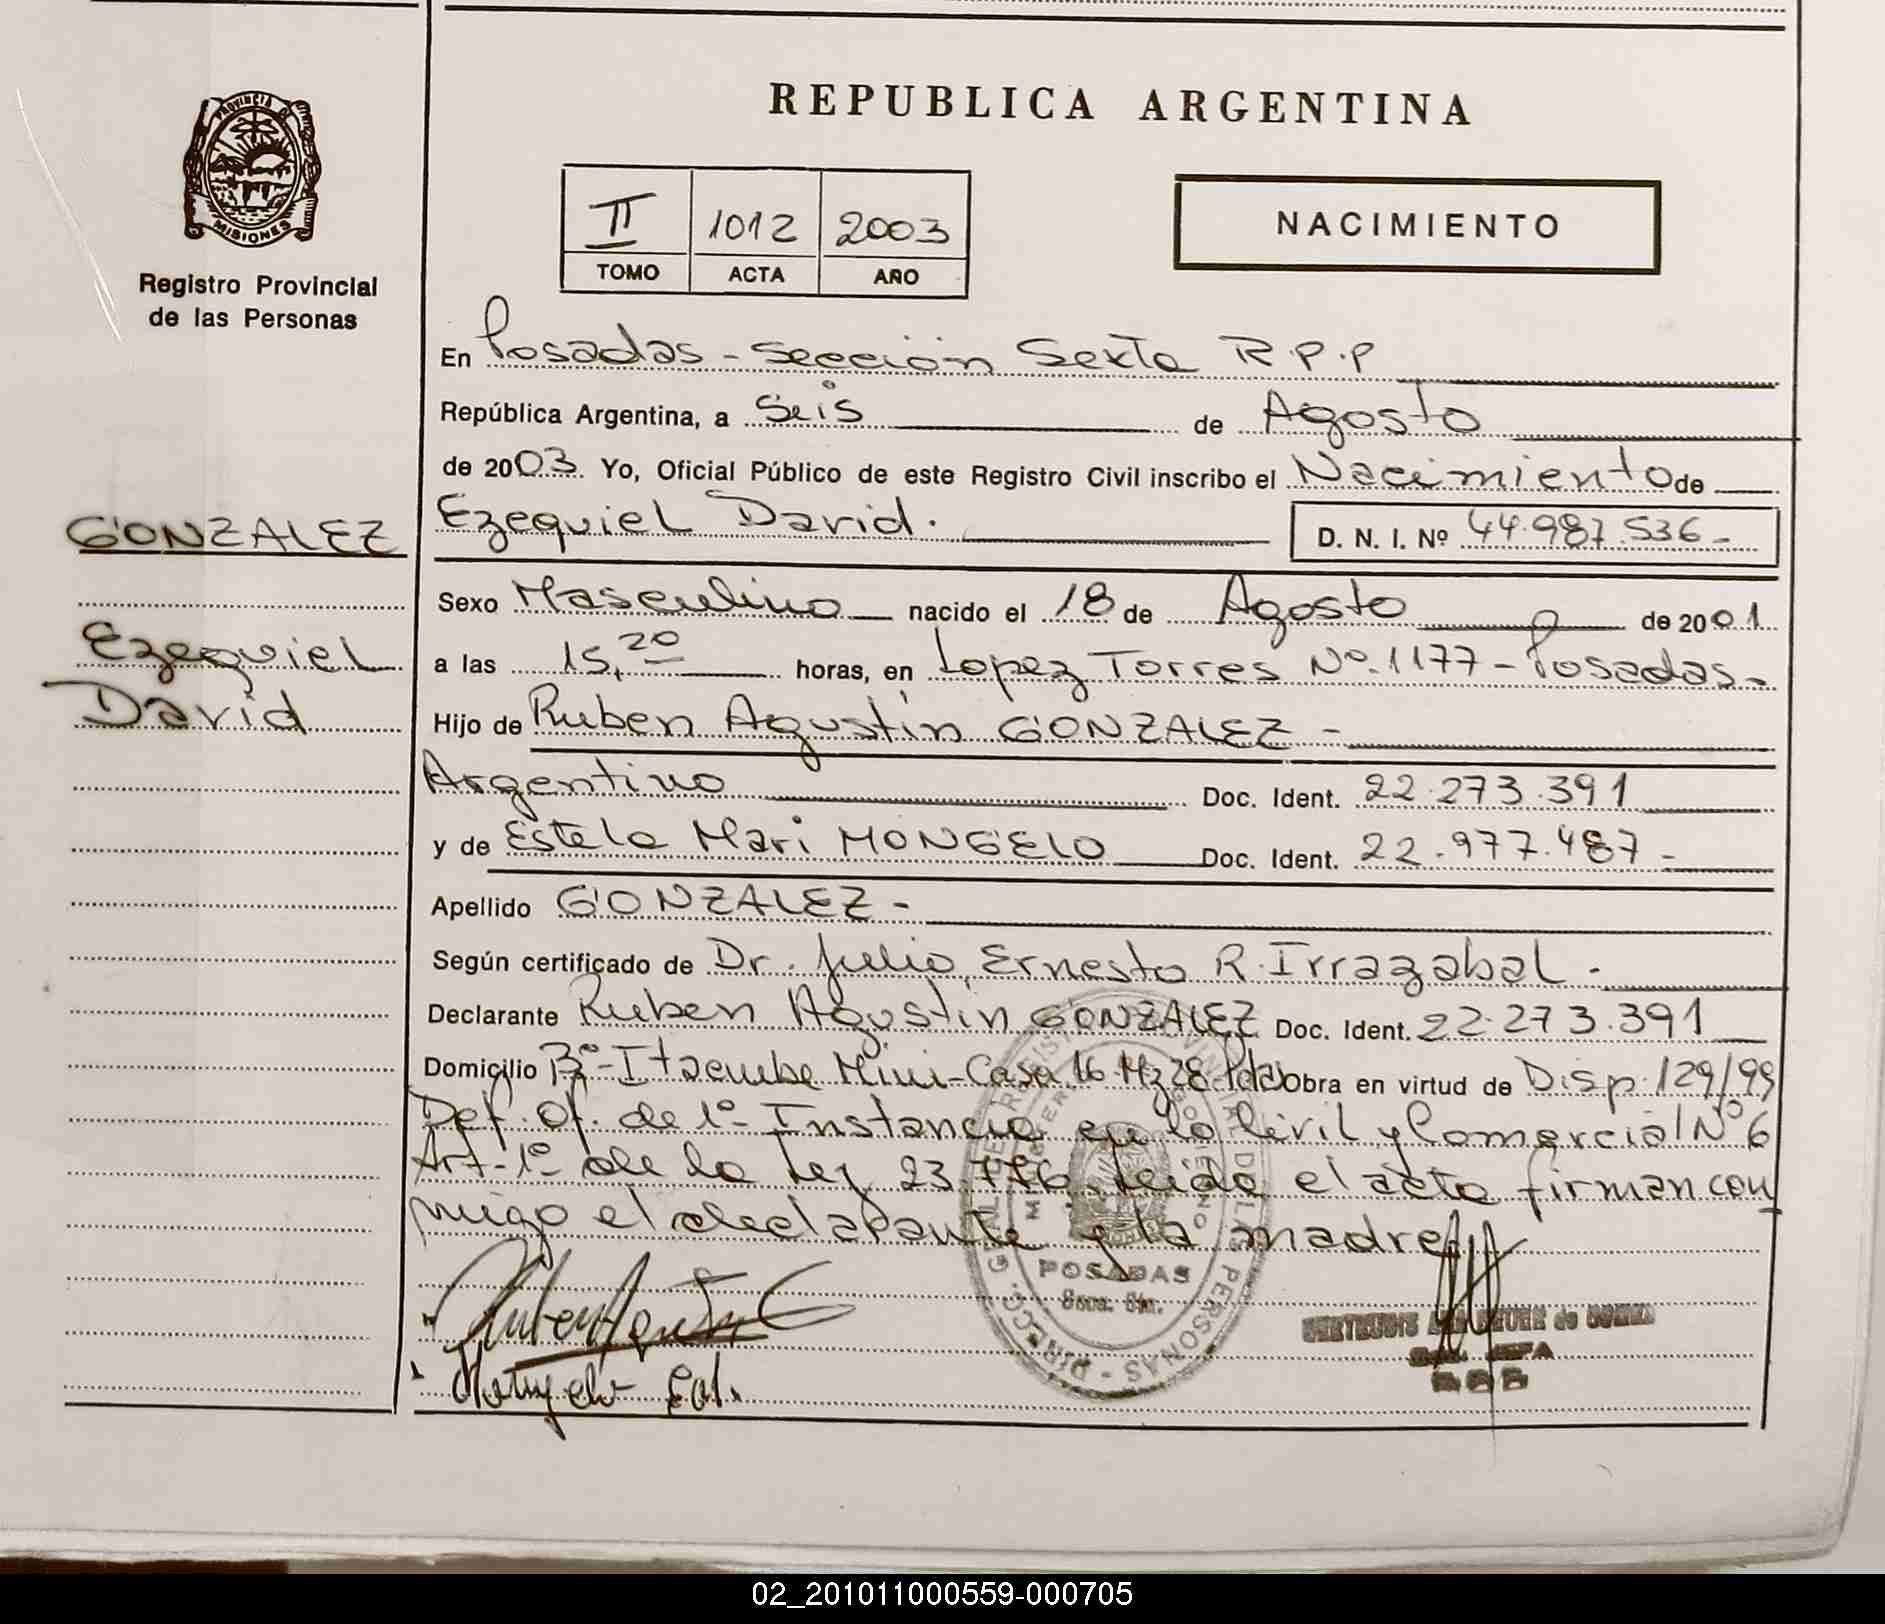 REPUBLICA ARGENTINA
PROVINCIA DE
MISIONES
Registro Provincial
de las Personas
II 1012 2003
TOMO ACTA AÑO
NACIMIENTO
En Posadas - Sección Sexta R.P.P
República Argentina, a Seis de Agosto
de 2003. Yo, Oficial Público de este Registro Civil inscribo el Nacimiento de
GONZALEZ
Ezequiel David.
D. N. I. Nº 44.987.536-
Sexo Masculino nacido el 18 de Agosto de 2001
Ezequiel
David
a las 15,20 horas, en Lopez Torres Nº.1177 - Posadas-
Hijo de Ruben Agustín GONZALEZ -
Argentino Doc. Ident. 22.273.391
y de Estela Mari MONGELO Doc. Ident. 22.977.487-
Apellido GONZALEZ -
Según certificado de Dr. Julio Ernesto R. Irrazabal.
Declarante Ruben Agustín GONZALEZ Doc. Ident. 22.273.391
Domicilio Bº-Itaembe Mini-Casa 16 Mz 28-Pdas Obra en virtud de Disp. 129/99
Def. Of. de 1º Instancia en lo Civil y Comercial Nº 6
Art-1º de la Ley 23.776 leida el acta firman con
migo el declarante y la madre
POSADAS
Secc. 6ta.
DIRECC. GRAL DE REGISTRO PROVINCIAL DE LAS PERSONAS
02_201011000559-000705